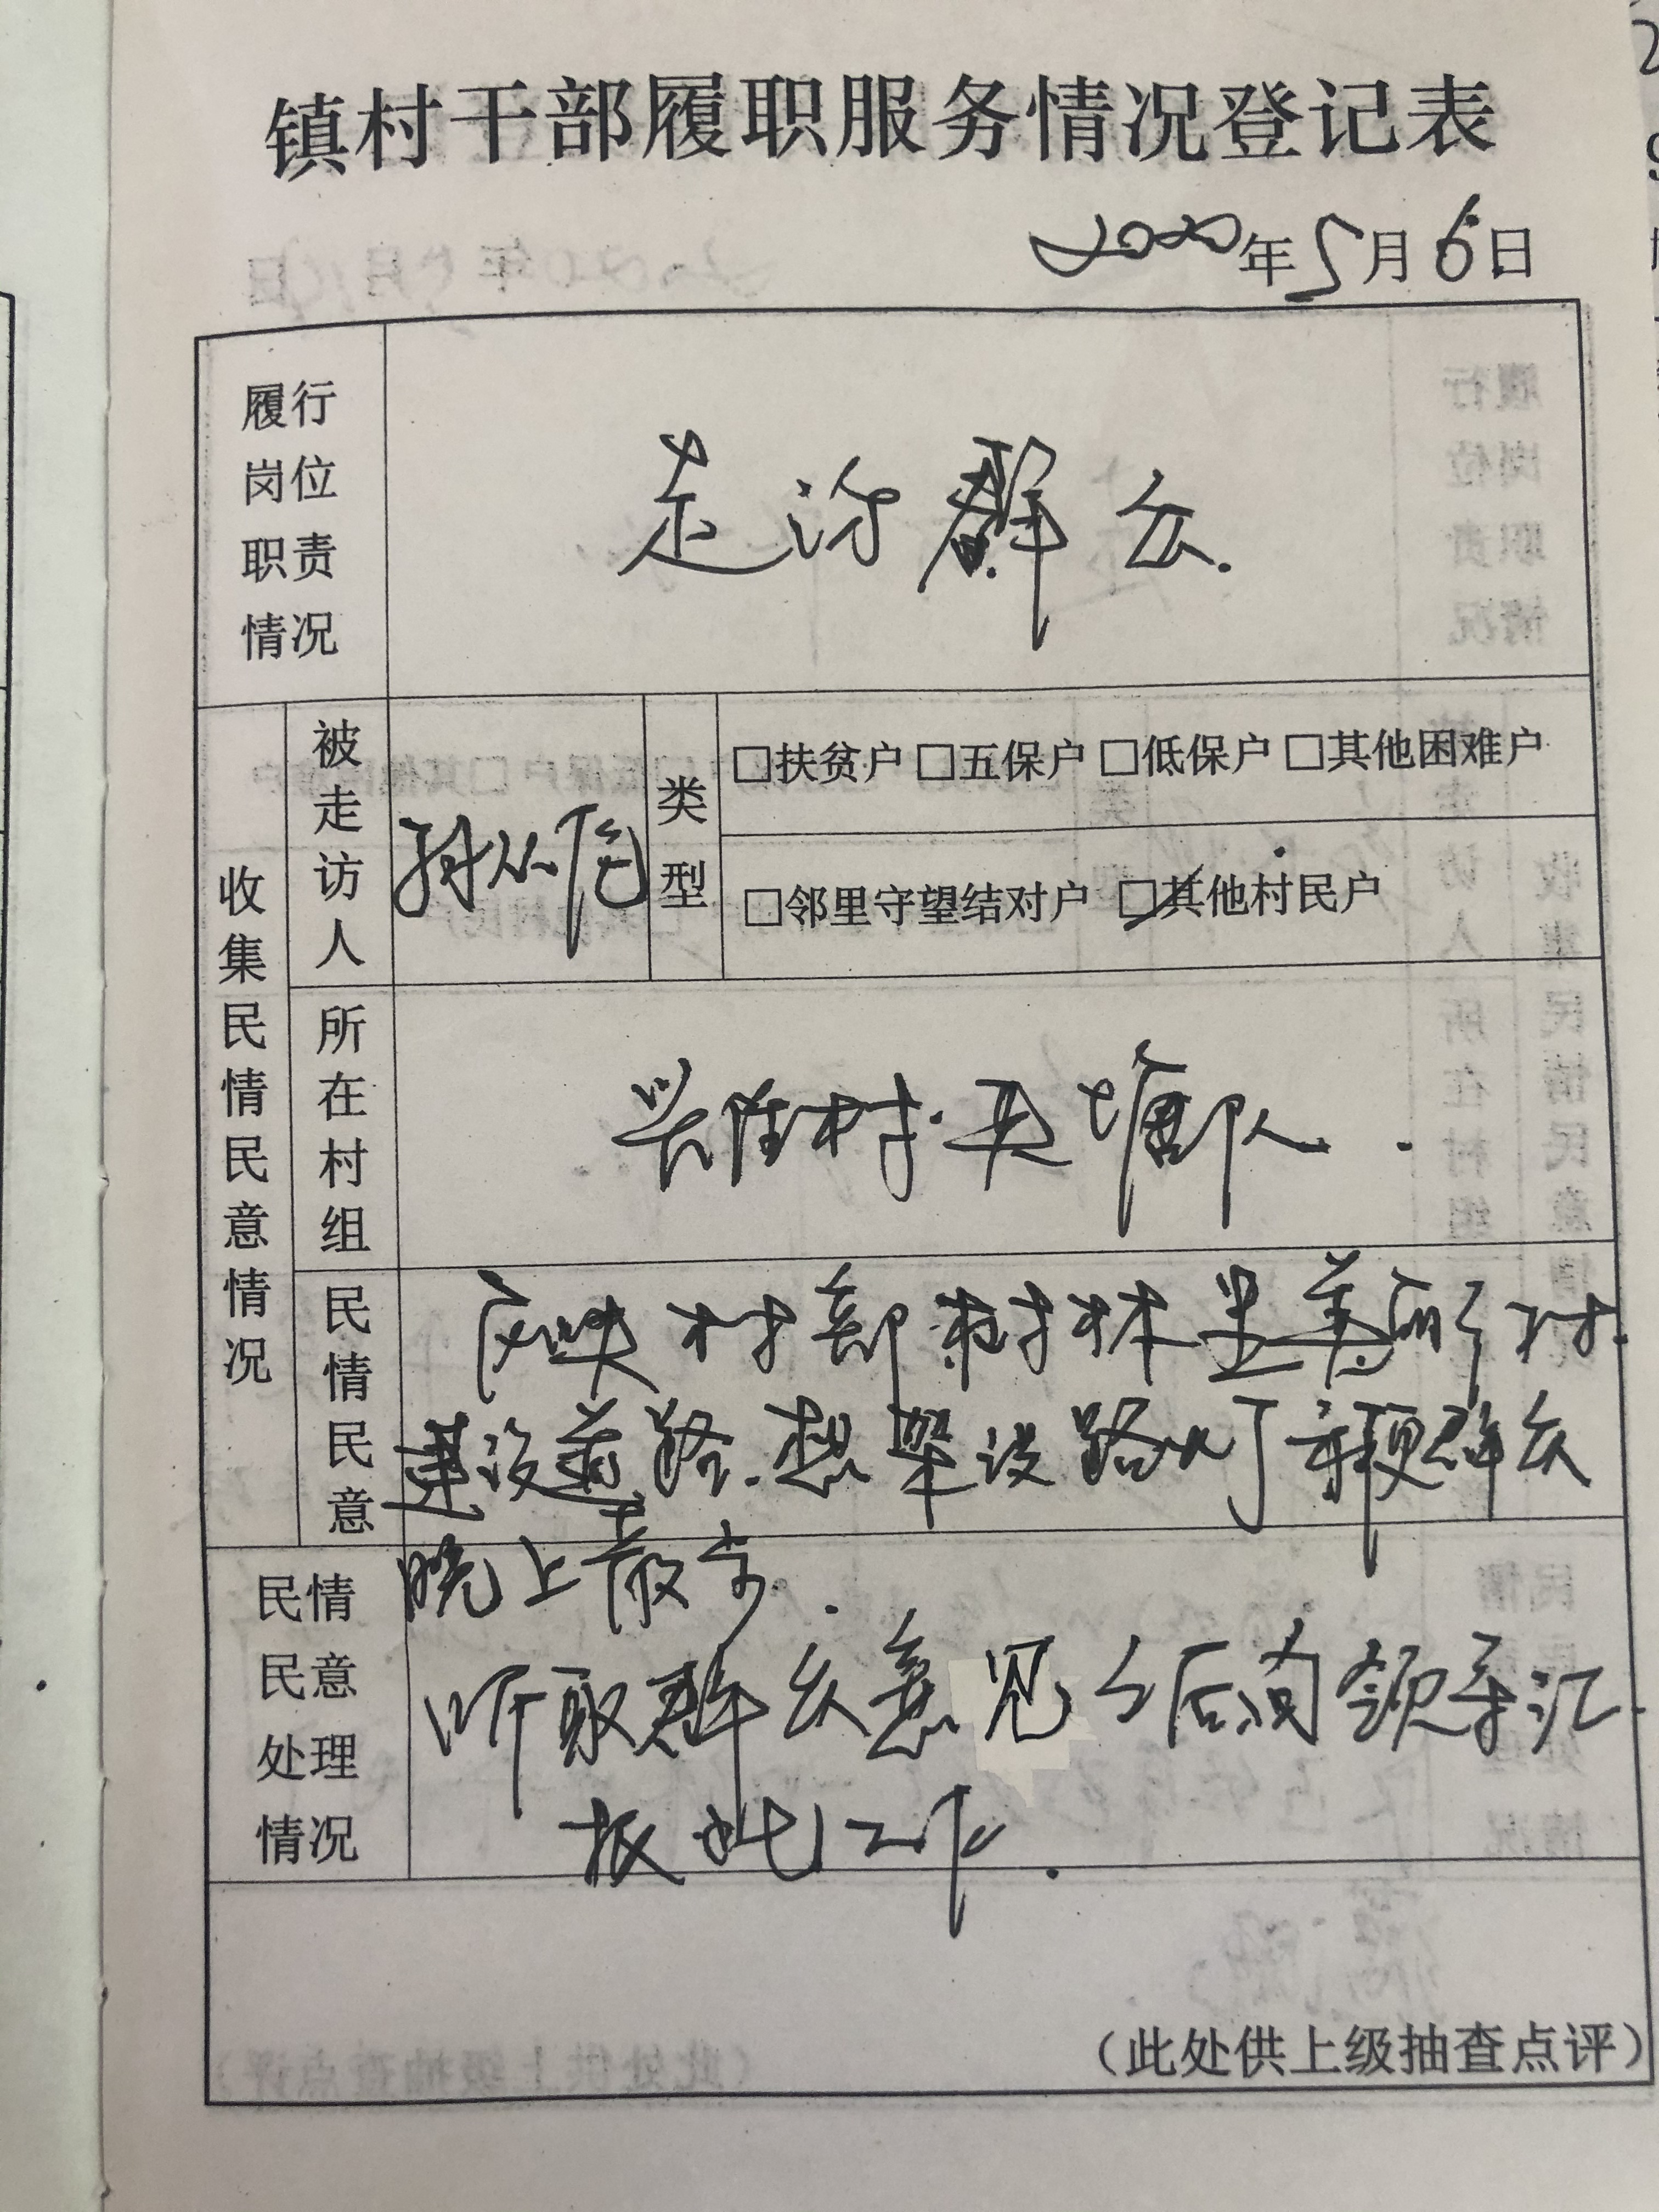 镇村干部履职服务情况登记表
2020年5月6日
履行岗位职责情况
走访群众.
收集民情民意情况
被走访人
孙从信
类型
□扶贫户 □五保户 □低保户 □其他困难户
□邻里守望结对户 ☑其他村民户
所在村组
兴隆村 塘队
民情民意
反映村部树林是美丽乡村
建设道路.想架设路灯方便群众
晚上散步.
民情民意处理情况
听取群众意见之后向领导汇
报此工作.
(此处供上级抽查点评)